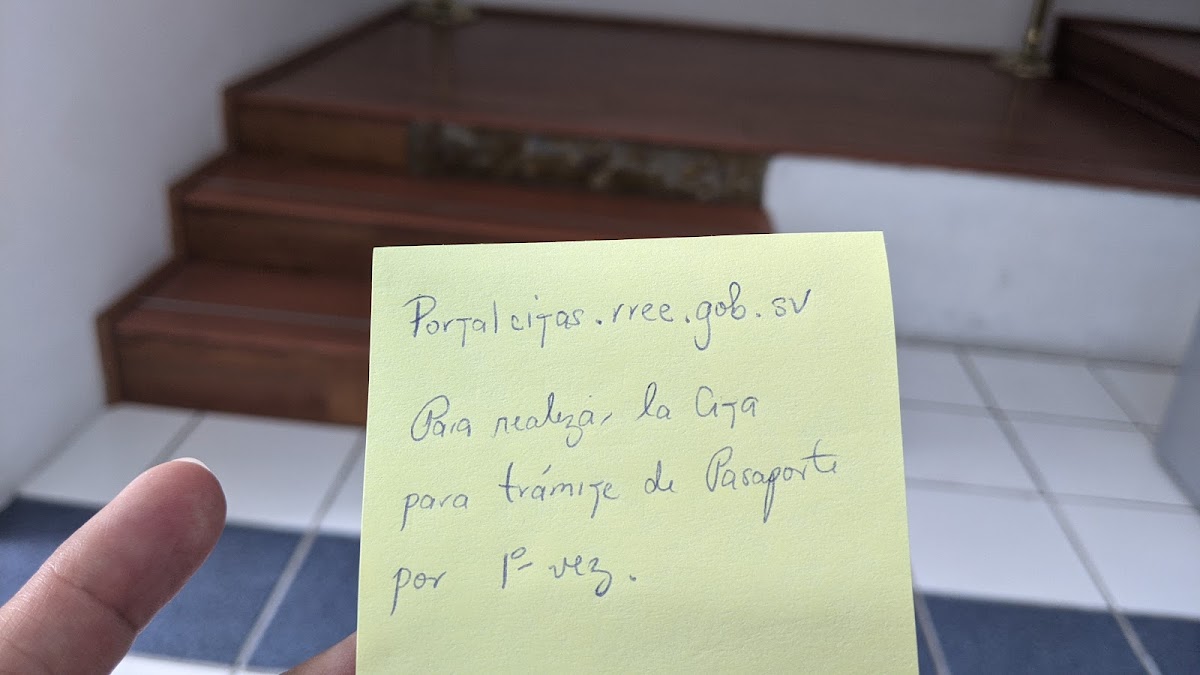 Portalcitas.rree.gob.sv
Para realizar la Cita
para trámite de Pasaporte
por 1º vez.